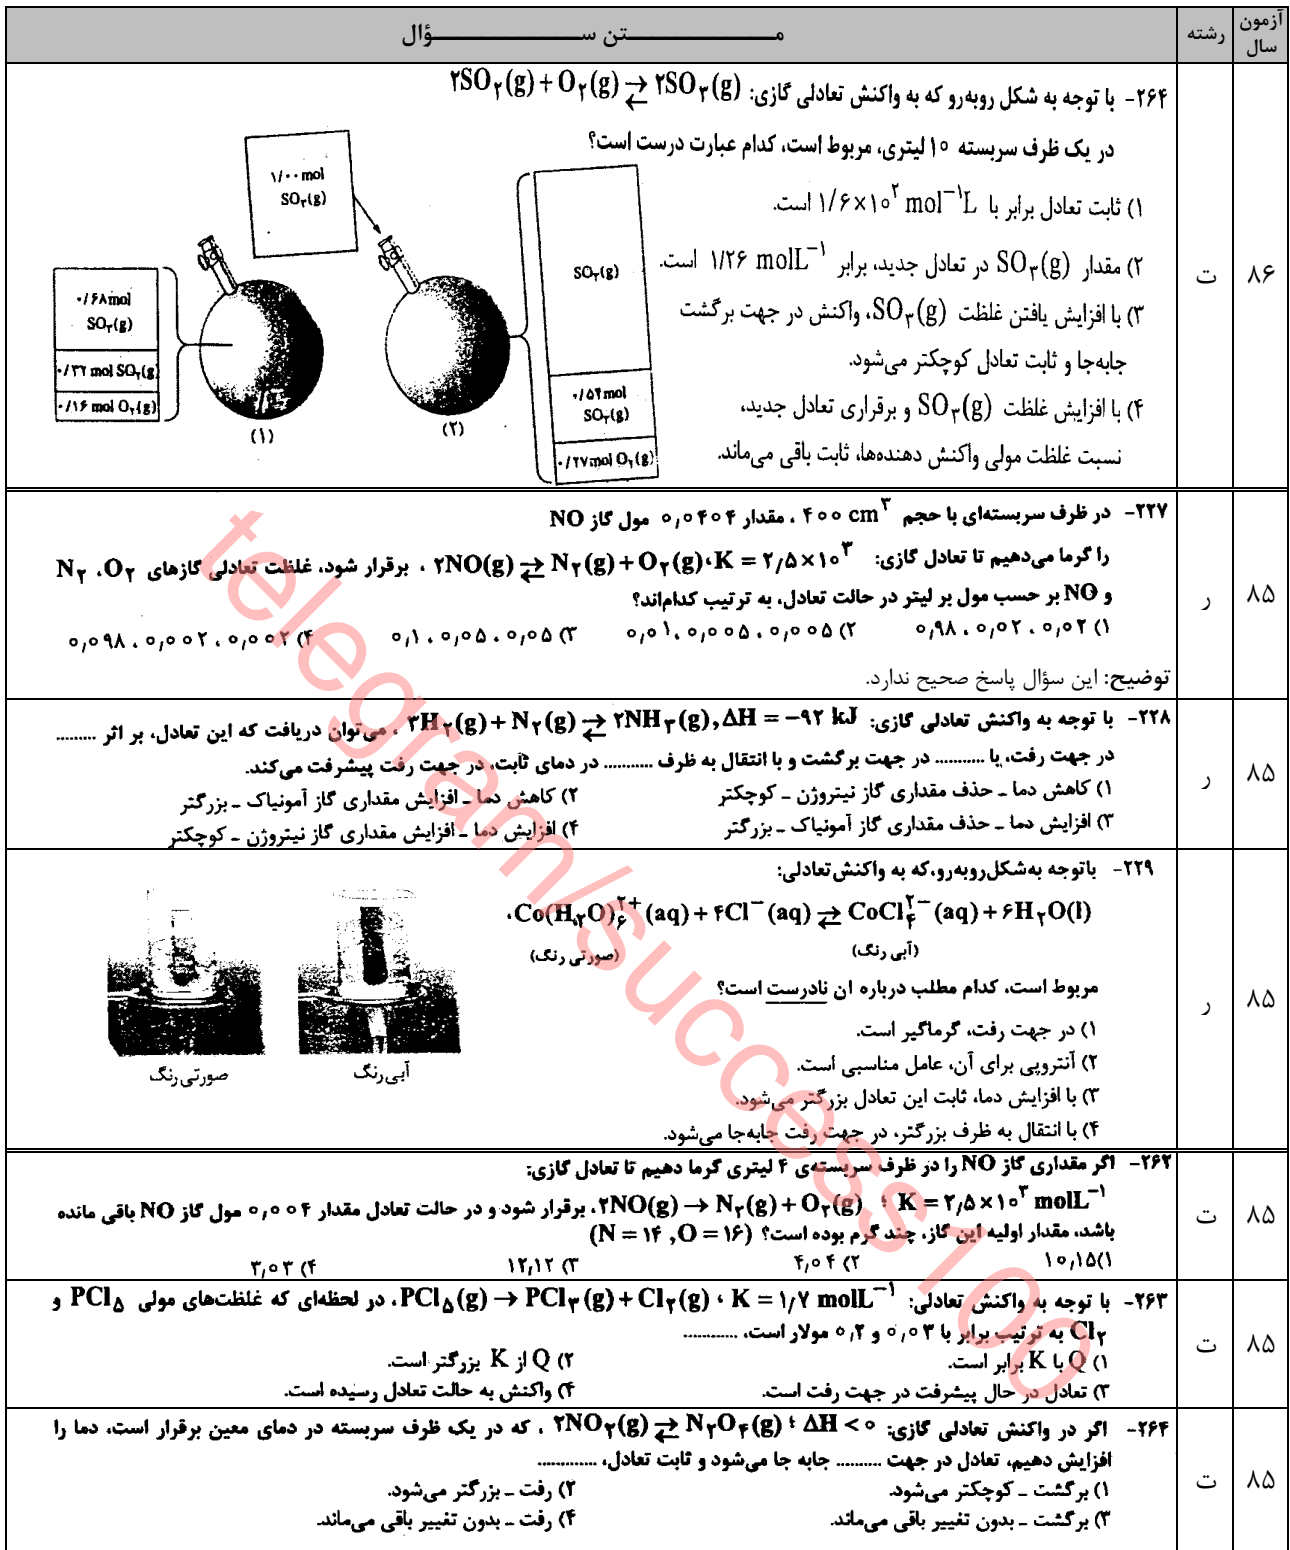 آزمون سال
رشته
متن سؤال
۸۶
ت
۲۶۴- با توجه به شکل روبه‌رو که به واکنش تعادلی گازی: ۲SO۲(g) + O۲(g) ⇄ ۲SO۳(g)
در یک ظرف سربسته ۱۰ لیتری، مربوط است، کدام عبارت درست است؟
۱) ثابت تعادل برابر با ۱/۶×۱۰^۲ mol^−۱L است.
۲) مقدار SO۳(g) در تعادل جدید، برابر ۱/۲۶ molL^−۱ است.
۳) با افزایش یافتن غلظت SO۳(g)، واکنش در جهت برگشت
جابه‌جا و ثابت تعادل کوچکتر می‌شود.
۴) با افزایش غلظت SO۳(g) و برقراری تعادل جدید،
نسبت غلظت مولی واکنش دهنده‌ها، ثابت باقی می‌ماند.
۱/۰۰ mol
SO۳(g)
۰/۶۸ mol
SO۳(g)
۰/۳۲ mol SO۲(g)
۰/۱۶ mol O۲(g)
(۱)
(۲)
SO۳(g)
۰/۵۴ mol
SO۲(g)
۰/۲۷ mol O۲(g)
۸۵
ر
۲۲۷- در ظرف سربسته‌ای با حجم ۴۰۰ cm^۳ ، مقدار ۰٫۰۴۰۴ مول گاز NO
را گرما می‌دهیم تا تعادل گازی: ۲NO(g) ⇄ N۲(g) + O۲(g) ، K = ۲٫۵×۱۰^۳ ، برقرار شود، غلظت تعادلی گازهای O۲ ، N۲
و NO بر حسب مول بر لیتر در حالت تعادل، به ترتیب کدام‌اند؟
۱) ۰٫۰۲ ، ۰٫۰۲ ، ۰٫۹۸ ۲) ۰٫۰۰۵ ، ۰٫۰۰۵ ، ۰٫۰۱ ۳) ۰٫۰۵ ، ۰٫۰۵ ، ۰٫۱ ۴) ۰٫۰۰۲ ، ۰٫۰۰۲ ، ۰٫۰۹۸
توضیح: این سؤال پاسخ صحیح ندارد.
۸۵
ر
۲۲۸- با توجه به واکنش تعادلی گازی: ۳H۲(g) + N۲(g) ⇄ ۲NH۳(g) , ΔH = −۹۲ kJ ، می‌توان دریافت که این تعادل، بر اثر .........
در جهت رفت، یا ........... در جهت برگشت و با انتقال به ظرف ........... در دمای ثابت، در جهت رفت پیشرفت می‌کند.
۱) کاهش دما ـ حذف مقداری گاز نیتروژن ـ کوچکتر ۲) کاهش دما ـ افزایش مقداری گاز آمونیاک ـ بزرگتر
۳) افزایش دما ـ حذف مقداری گاز آمونیاک ـ بزرگتر ۴) افزایش دما ـ افزایش مقداری گاز نیتروژن ـ کوچکتر
۸۵
ر
۲۲۹- باتوجه به‌شکل‌روبه‌رو،که به واکنش‌تعادلی:
Co(H۲O)۶^۲+(aq) + ۴Cl^−(aq) ⇄ CoCl۴^۲−(aq) + ۶H۲O(l) ،
(صورتی رنگ) (آبی رنگ)
مربوط است، کدام مطلب درباره ان نادرست است؟
۱) در جهت رفت، گرماگیر است.
۲) آنتروپی برای آن، عامل مناسبی است.
۳) با افزایش دما، ثابت این تعادل بزرگتر می‌شود.
۴) با انتقال به ظرف بزرگتر، در جهت رفت جابه‌جا می‌شود.
آبی‌رنگ
صورتی‌رنگ
۸۵
ت
۲۶۲- اگر مقداری گاز NO را در ظرف سربسته‌ی ۴ لیتری گرما دهیم تا تعادل گازی:
۲NO(g) → N۲(g) + O۲(g) ؛ K = ۲٫۵×۱۰^۳ molL^−۱، برقرار شود و در حالت تعادل مقدار ۰٫۰۰۴ مول گاز NO باقی مانده
باشد، مقدار اولیه این گاز، چند گرم بوده است؟ (N = ۱۴ , O = ۱۶)
۱) ۱۰٫۱۵ ۲) ۴٫۰۴ ۳) ۱۲٫۱۲ ۴) ۳٫۰۳
۸۵
ت
۲۶۳- با توجه به واکنش تعادلی: PCl۵(g) → PCl۳(g) + Cl۲(g) ، K = ۱/۷ molL^−۱، در لحظه‌ای که غلظت‌های مولی PCl۵ و
Cl۲ به ترتیب برابر با ۰٫۰۳ و ۰٫۲ مولار است، ............
۱) Q با K برابر است. ۲) Q از K بزرگتر است.
۳) تعادل در حال پیشرفت در جهت رفت است. ۴) واکنش به حالت تعادل رسیده است.
۸۵
ت
۲۶۴- اگر در واکنش تعادلی گازی: ۲NO۲(g) ⇄ N۲O۴(g) ؛ ΔH < ۰ ، که در یک ظرف سربسته در دمای معین برقرار است، دما را
افزایش دهیم، تعادل در جهت .......... جابه جا می‌شود و ثابت تعادل، .............
۱) برگشت ـ کوچکتر می‌شود. ۲) رفت ـ بزرگتر می‌شود.
۳) برگشت ـ بدون تغییر باقی می‌ماند. ۴) رفت ـ بدون تغییر باقی می‌ماند.
telegram/success100